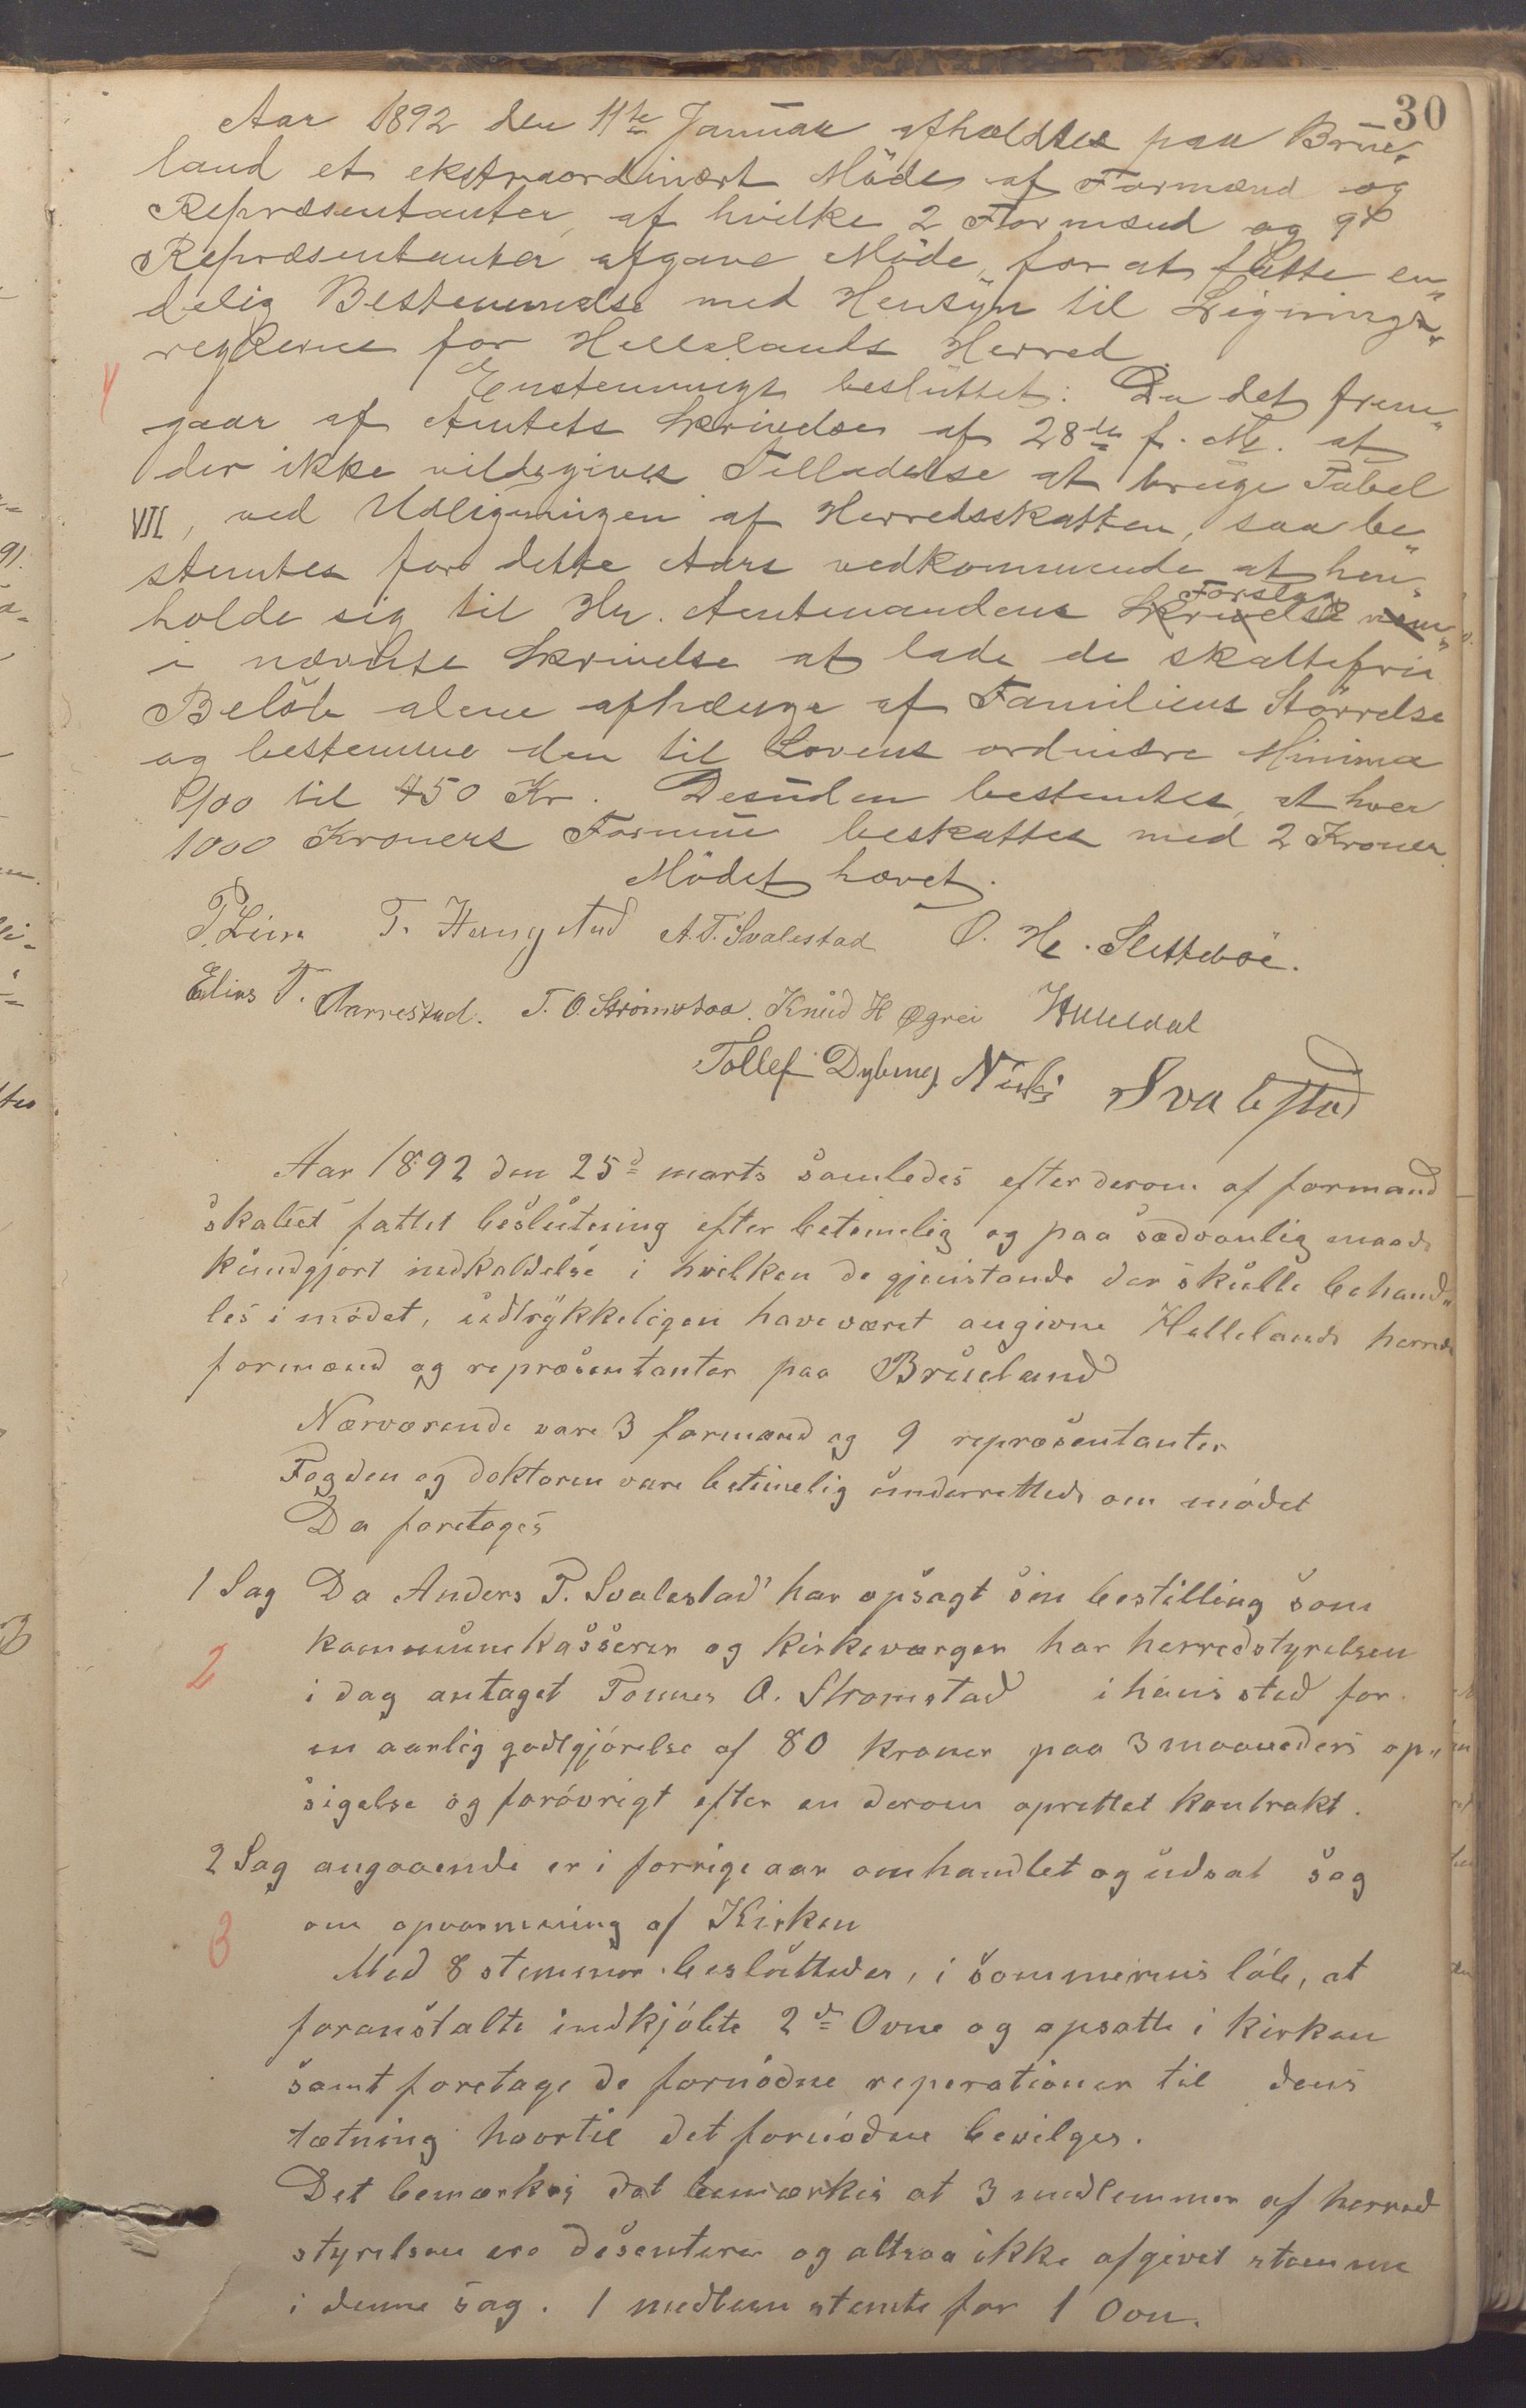 30
Aar 1892 den 11te Januar afholdtes paa Brue-
land et ekstraordinært Möde af Formænd og
Repræsentanter, af hvilke 2 Formænd og 9
Repræsentanter afgave Möde, for at fatte en"
delig Bestemmelse med Hensyn til Lignings"
reglerne for Hellelands Herred.
Enstemmigt besluttet: Da det frem"
gaar af Amtets Skrivelse af 28de f. M. at
der ikke vilde gives Tilladelse at bruge Tabel
VII, ved Udligningen af Herredsskatten, saa be"
stemtes for dette Aars vedkommende at hen"
holde sig til Hr. Amtmandens Skrivelse Forslag
i nævnte Skrivelse at lade de skattefrie
Belöb alene afhænge af Familiens Störrelse
og bestemme den til Lovens ordinære Minima
100 til 450 Kr. Desuden bestemtes, at hver
1000 Kroners Formue beskattes med 2 Kroner.
Mödet hævet.
T. A. T. Svalestad O. H. Sletteböe.
Elias T. Aarrestad. T. O. Strömstad. Knud H Øgrei
Tollef Dybing Svalestad
Aar 1892 den 25d marts samledes efter derom af formand
skabet fattet beslutning efter betimelig og paa sædvanlig maade
kundgjort indkaldelse i hvilken de gjenstande der skulle behand"
les i mødet, udtrykkeligen have været angivne Hellelands herreds
formænd og repræsentanter paa Brueland
Nærværende vare 3 formænd og 9 repræsentanter
Fogden og doktoren vare betimelig underrettede om mødet
Da foretoges
1 Sag Da Anders T. Svalestad har opsagt sin bestilling som
kommunekasserer og kirkeværger har herredstyrelsen
2
i dag antaget Tønnes O. Strømstad i hans sted for
en aarlig godtgjørelse af 80 kroner paa 3 maaneders op"
sigelse og forøvrigt efter en derom oprettet kontrakt.
2 Sag angaaende er i forrige aar omhandlet og udsat sag
om opvarmning af Kirken
3
Med 8 stemmer besluttedes, i sommerens løb, at
foranstalte indkjøbte 2de Ovne og opsatte i kirken
samt foretage de fornødne reperationer til dens
tætning hvortil det fornødne bevilges.
Det bemærkes dat bemærkes at 3 medlemmer af herred
styrelsen ere desenterer og altsaa ikke afgivet stemme
i denne sag. 1 medlem stemte for 1 Ovn.